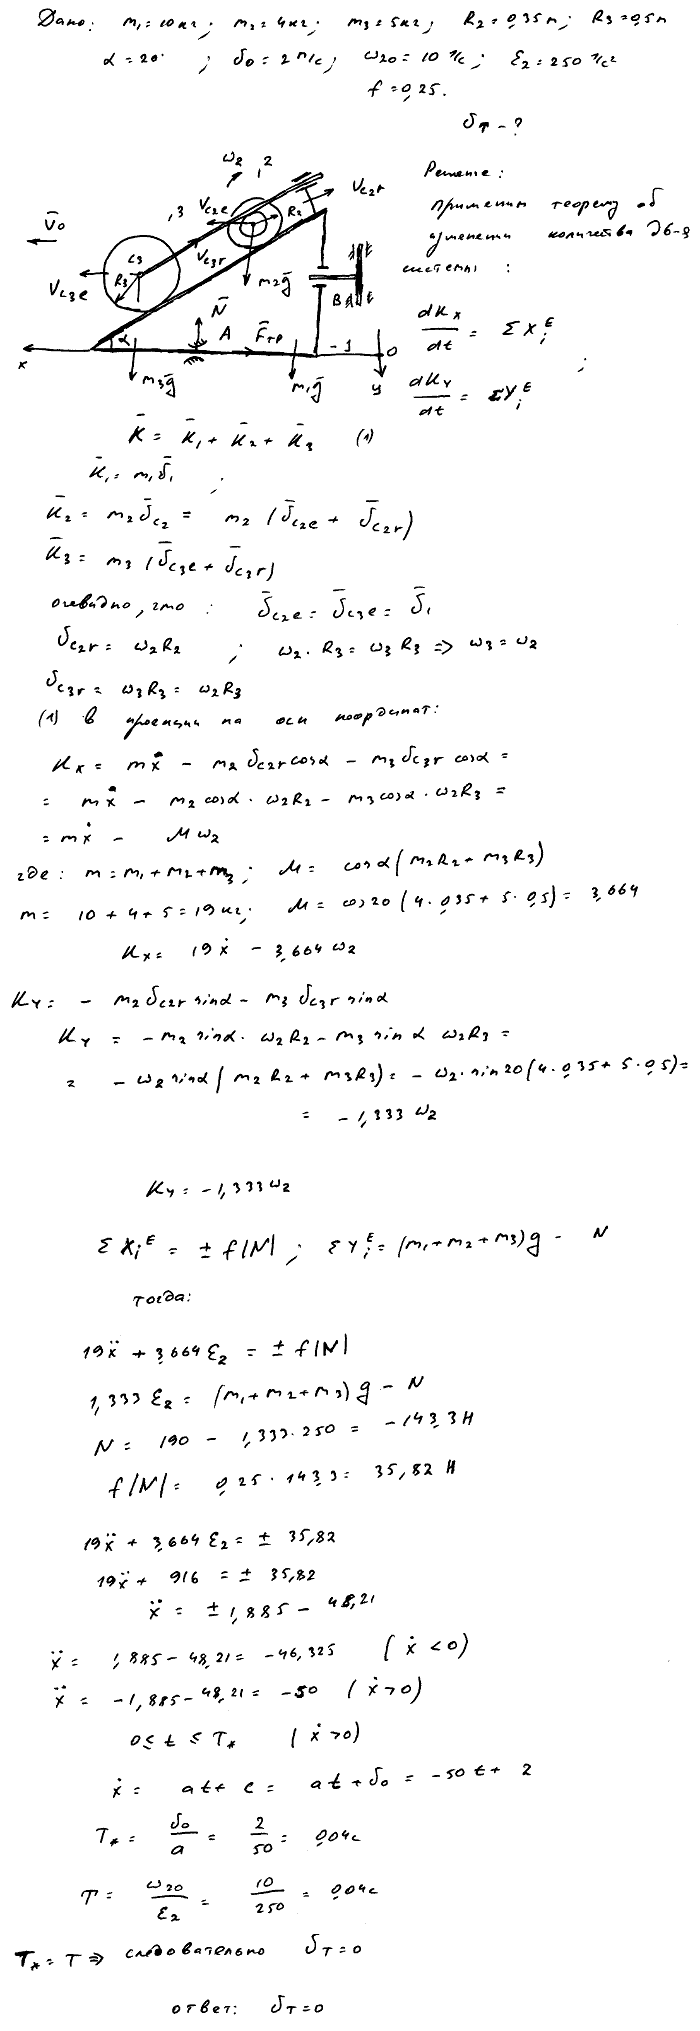 Дано: m₁=10кг; m₂=4кг; m₃=5кг; R₂=0,35м; R₃=0,5м
α=20°; υ₀=2 м/с; ω₂₀=10 1/с; ε₂=250 1/с²
f=0,25.
υ_T - ?
Решение:
применим теорему об
изменении количества дв-я
системы:
dK_x/dt = ΣX_i^E ;
dK_y/dt = ΣY_i^E
ω₂
, 2
V_C2r
, 3
V_C2e
R₂
V̄₀
C₃
V_C3r
V_C3e
R₃
m₂ḡ
B
N̄
α
A
F̄_тр
- 1
O
x
m₃ḡ
m₁ḡ
y
K̄ = K̄₁ + K̄₂ + K̄₃ (1)
K̄₁ = m₁ῡ₁ ;
K̄₂ = m₂ῡ_C2 = m₂ (ῡ_C2e + ῡ_C2r)
K̄₃ = m₃ (ῡ_C3e + ῡ_C3r)
очевидно, что : ῡ_C2e = ῡ_C3e = ῡ₁
υ_C2r = ω₂R₂ ; ω₂·R₃ = ω₃R₃ => ω₃ = ω₂
υ_C3r = ω₃R₃ = ω₂R₃
(1) в проекции на оси координат:
K_x = mẋ - m₂υ_C2r cosα - m₃υ_C3r cosα =
= mẋ - m₂cosα · ω₂R₂ - m₃cosα · ω₂R₃ =
= mẋ - Mω₂
где: m = m₁+m₂+m₃; M = cosα(m₂R₂+m₃R₃)
m = 10+4+5 = 19кг; M = cos20(4·0,35+5·0,5) = 3,664
K_x = 19ẋ - 3,664ω₂
K_y = - m₂υ_C2r sinα - m₃υ_C3r sinα
K_y = -m₂sinα·ω₂R₂ - m₃ sinα ω₂R₃ =
= -ω₂ sinα (m₂R₂ + m₃R₃) = -ω₂·sin20(4·0,35+5·0,5) =
= -1,333 ω₂
K_y = -1,333ω₂
ΣX_i^E = ± f|N| ; ΣY_i^E = (m₁+m₂+m₃)g - N
тогда:
19ẍ + 3,664ε₂ = ± f|N|
1,333ε₂ = (m₁+m₂+m₃)g - N
N = 190 - 1,333·250 = -143,3Н
f|N| = 0,25·143,3 = 35,82 Н
19ẍ + 3,664ε₂ = ± 35,82
19ẍ + 916 = ± 35,82
ẍ = ±1,885 - 48,21
ẍ = 1,885 - 48,21 = -46,325 (ẋ<0)
ẍ = -1,885 - 48,21 = -50 (ẋ>0)
0 ≤ t ≤ T* (ẋ>0)
ẋ = at + c = at + υ₀ = -50t + 2
T* = υ₀/a = 2/50 = 0,04с
T = ω₂₀/ε₂ = 10/250 = 0,04с
T* = T => следовательно υ_T = 0
ответ: υ_T = 0